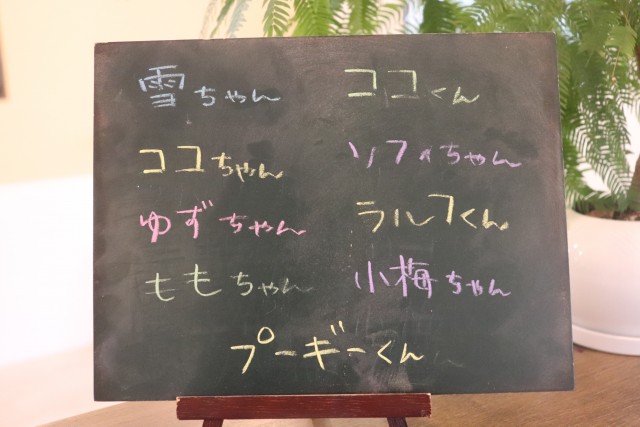 雪ちゃん ココくん
ココちゃん ソフィちゃん
ゆずちゃん ラルフくん
ももちゃん 小梅ちゃん
プーギーくん